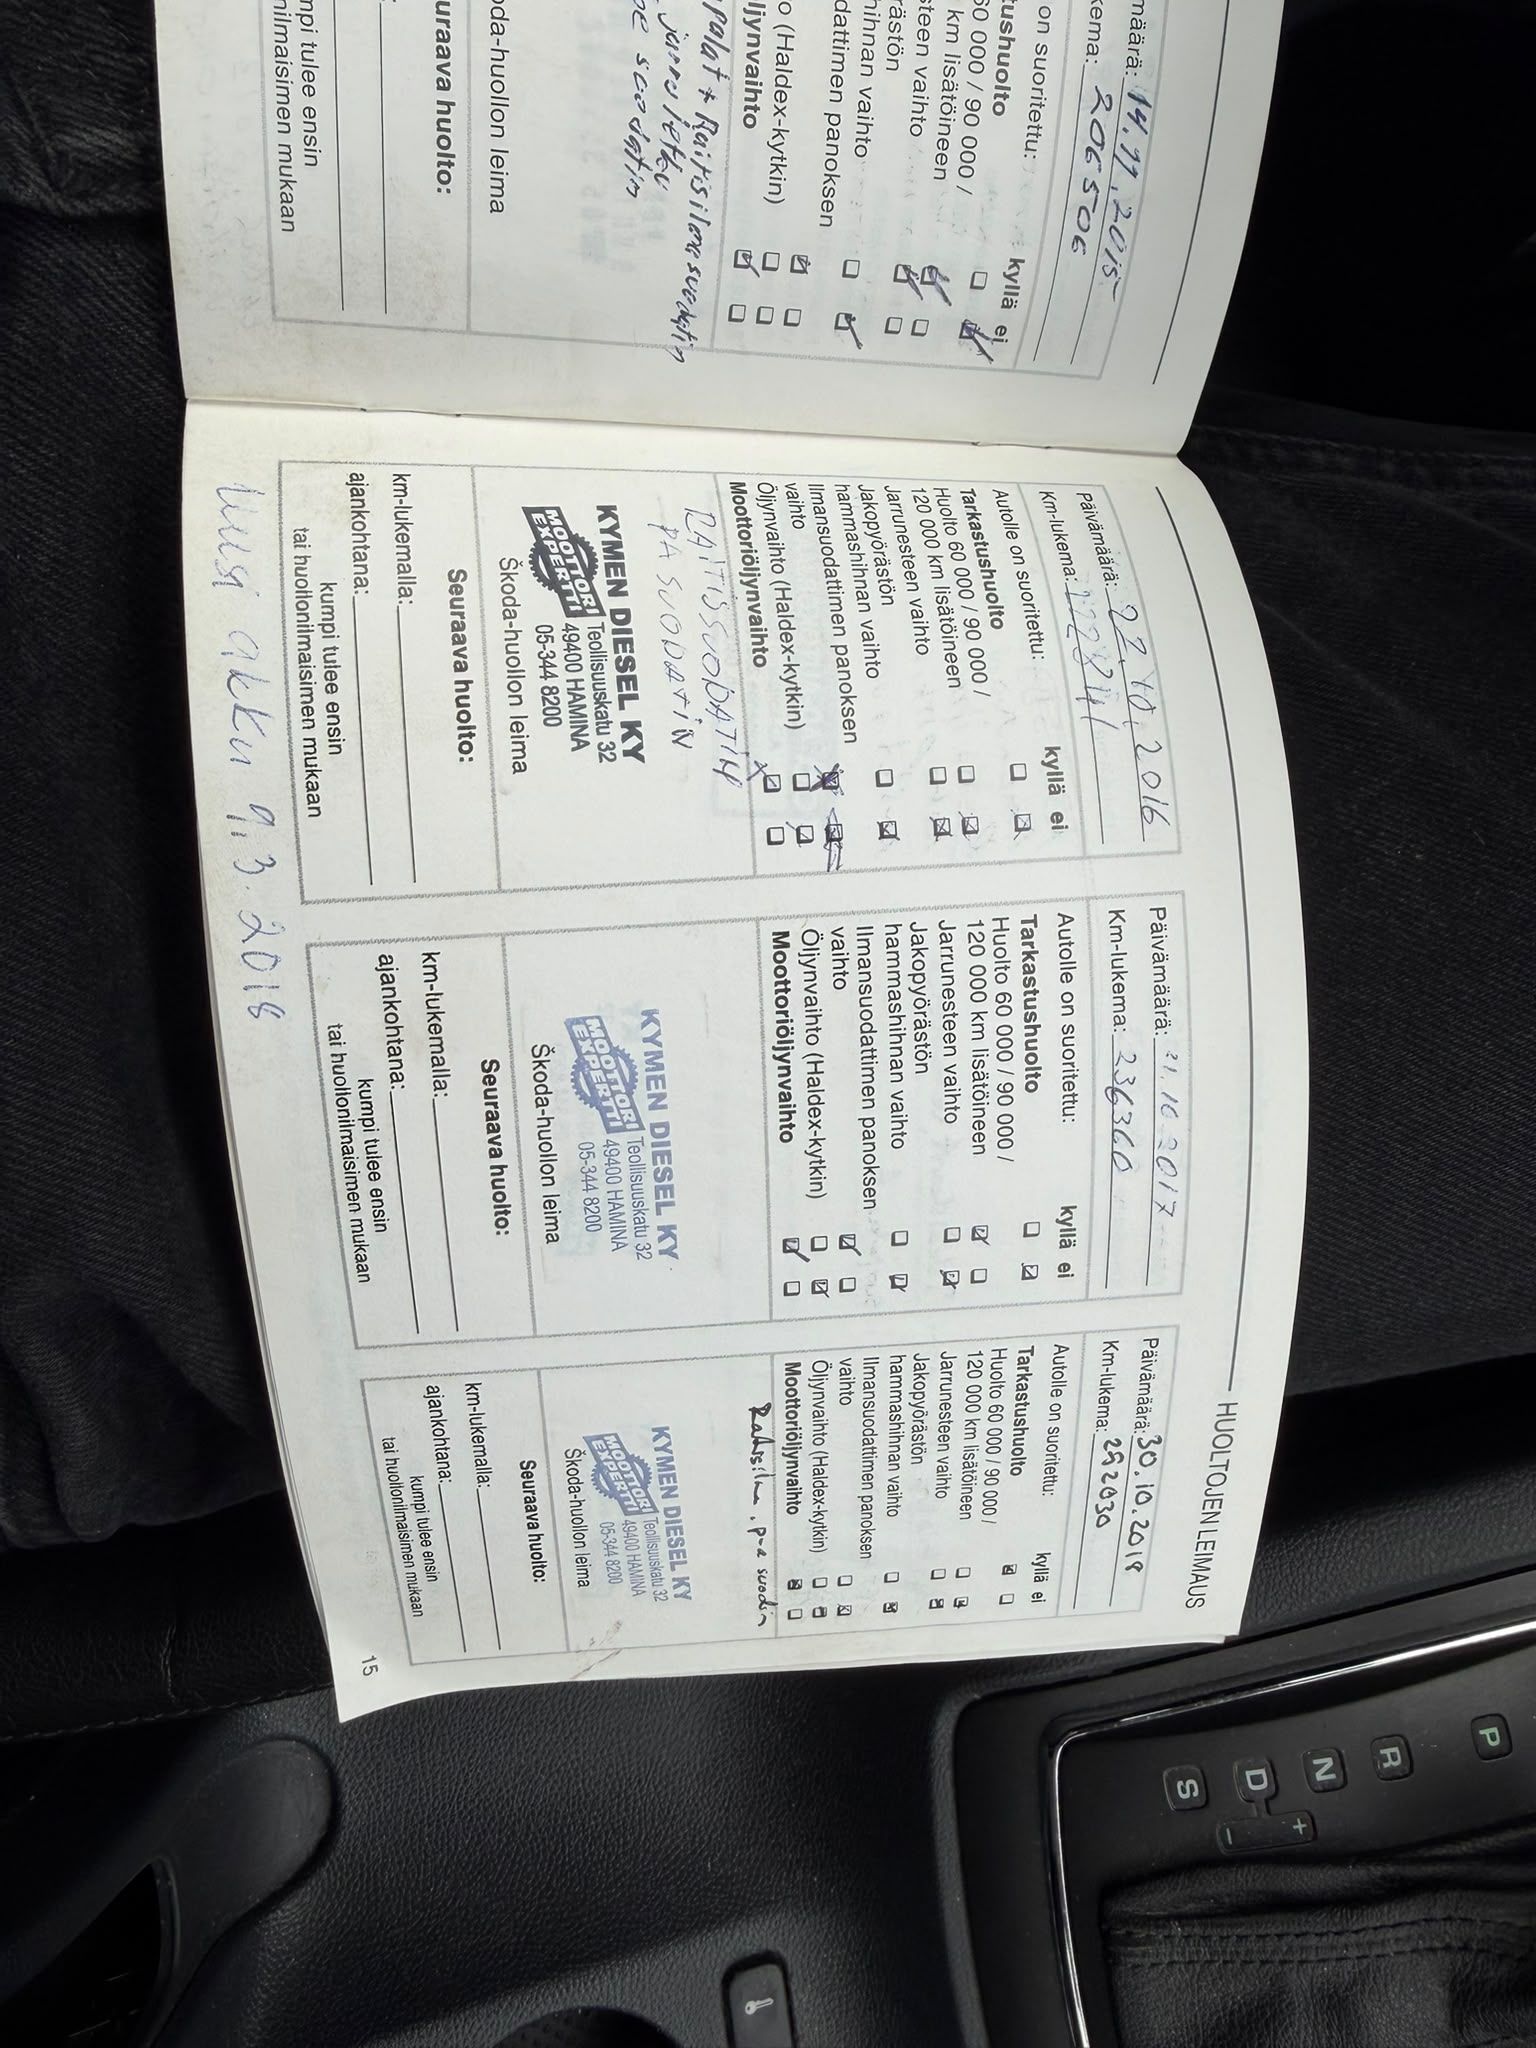 määrä: 14.11.2015
kema: 206506
on suoritettu:
kyllä ei
tushuolto
60 000 / 90 000 /
km lisätöineen
steen vaihto
rästön
hihnan vaihto
dattimen panoksen
o (Haldex-kytkin)
ljynvaihto
palat + Raitisilmasuodatin
oda-huollon leima
uraava huolto:
mpi tulee ensin
nilmaisimen mukaan
HUOLTOJEN LEIMAUS
Päivämäärä: 27.10.2016
Km-lukema:
Autolle on suoritettu:
kyllä ei
Tarkastushuolto
Huolto 60 000 / 90 000 /
120 000 km lisätöineen
Jarrunesteen vaihto
Jakopyörästön
hammashihnan vaihto
Ilmansuodattimen panoksen
vaihto
Öljynvaihto (Haldex-kytkin)
Moottoriöljynvaihto
RAITISSUODATIN
PA SUODATIN
KYMEN DIESEL KY
MOOTTORI
EXPERTTI
Teollisuuskatu 32
49400 HAMINA
05-344 8200
Škoda-huollon leima
Seuraava huolto:
km-lukemalla:
ajankohtana:
kumpi tulee ensin
tai huollonilmaisimen mukaan
Uusi akku 9.3.2018
Päivämäärä: 31.10.2017
Km-lukema: 236360
Autolle on suoritettu:
kyllä ei
Tarkastushuolto
Huolto 60 000 / 90 000 /
120 000 km lisätöineen
Jarrunesteen vaihto
Jakopyörästön
hammashihnan vaihto
Ilmansuodattimen panoksen
vaihto
Öljynvaihto (Haldex-kytkin)
Moottoriöljynvaihto
KYMEN DIESEL KY
MOOTTORI
EXPERTTI
Teollisuuskatu 32
49400 HAMINA
05-344 8200
Škoda-huollon leima
Seuraava huolto:
km-lukemalla:
ajankohtana:
kumpi tulee ensin
tai huollonilmaisimen mukaan
Päivämäärä: 30.10.2019
Km-lukema: 292030
Autolle on suoritettu:
kyllä ei
Tarkastushuolto
Huolto 60 000 / 90 000 /
120 000 km lisätöineen
Jarrunesteen vaihto
Jakopyörästön
hammashihnan vaihto
Ilmansuodattimen panoksen
vaihto
Öljynvaihto (Haldex-kytkin)
Moottoriöljynvaihto
KYMEN DIESEL KY
MOOTTORI
EXPERTTI
Teollisuuskatu 32
49400 HAMINA
05-344 8200
Škoda-huollon leima
Seuraava huolto:
km-lukemalla:
ajankohtana:
kumpi tulee ensin
tai huollonilmaisimen mukaan
15
P
R
N
D
S
+
-